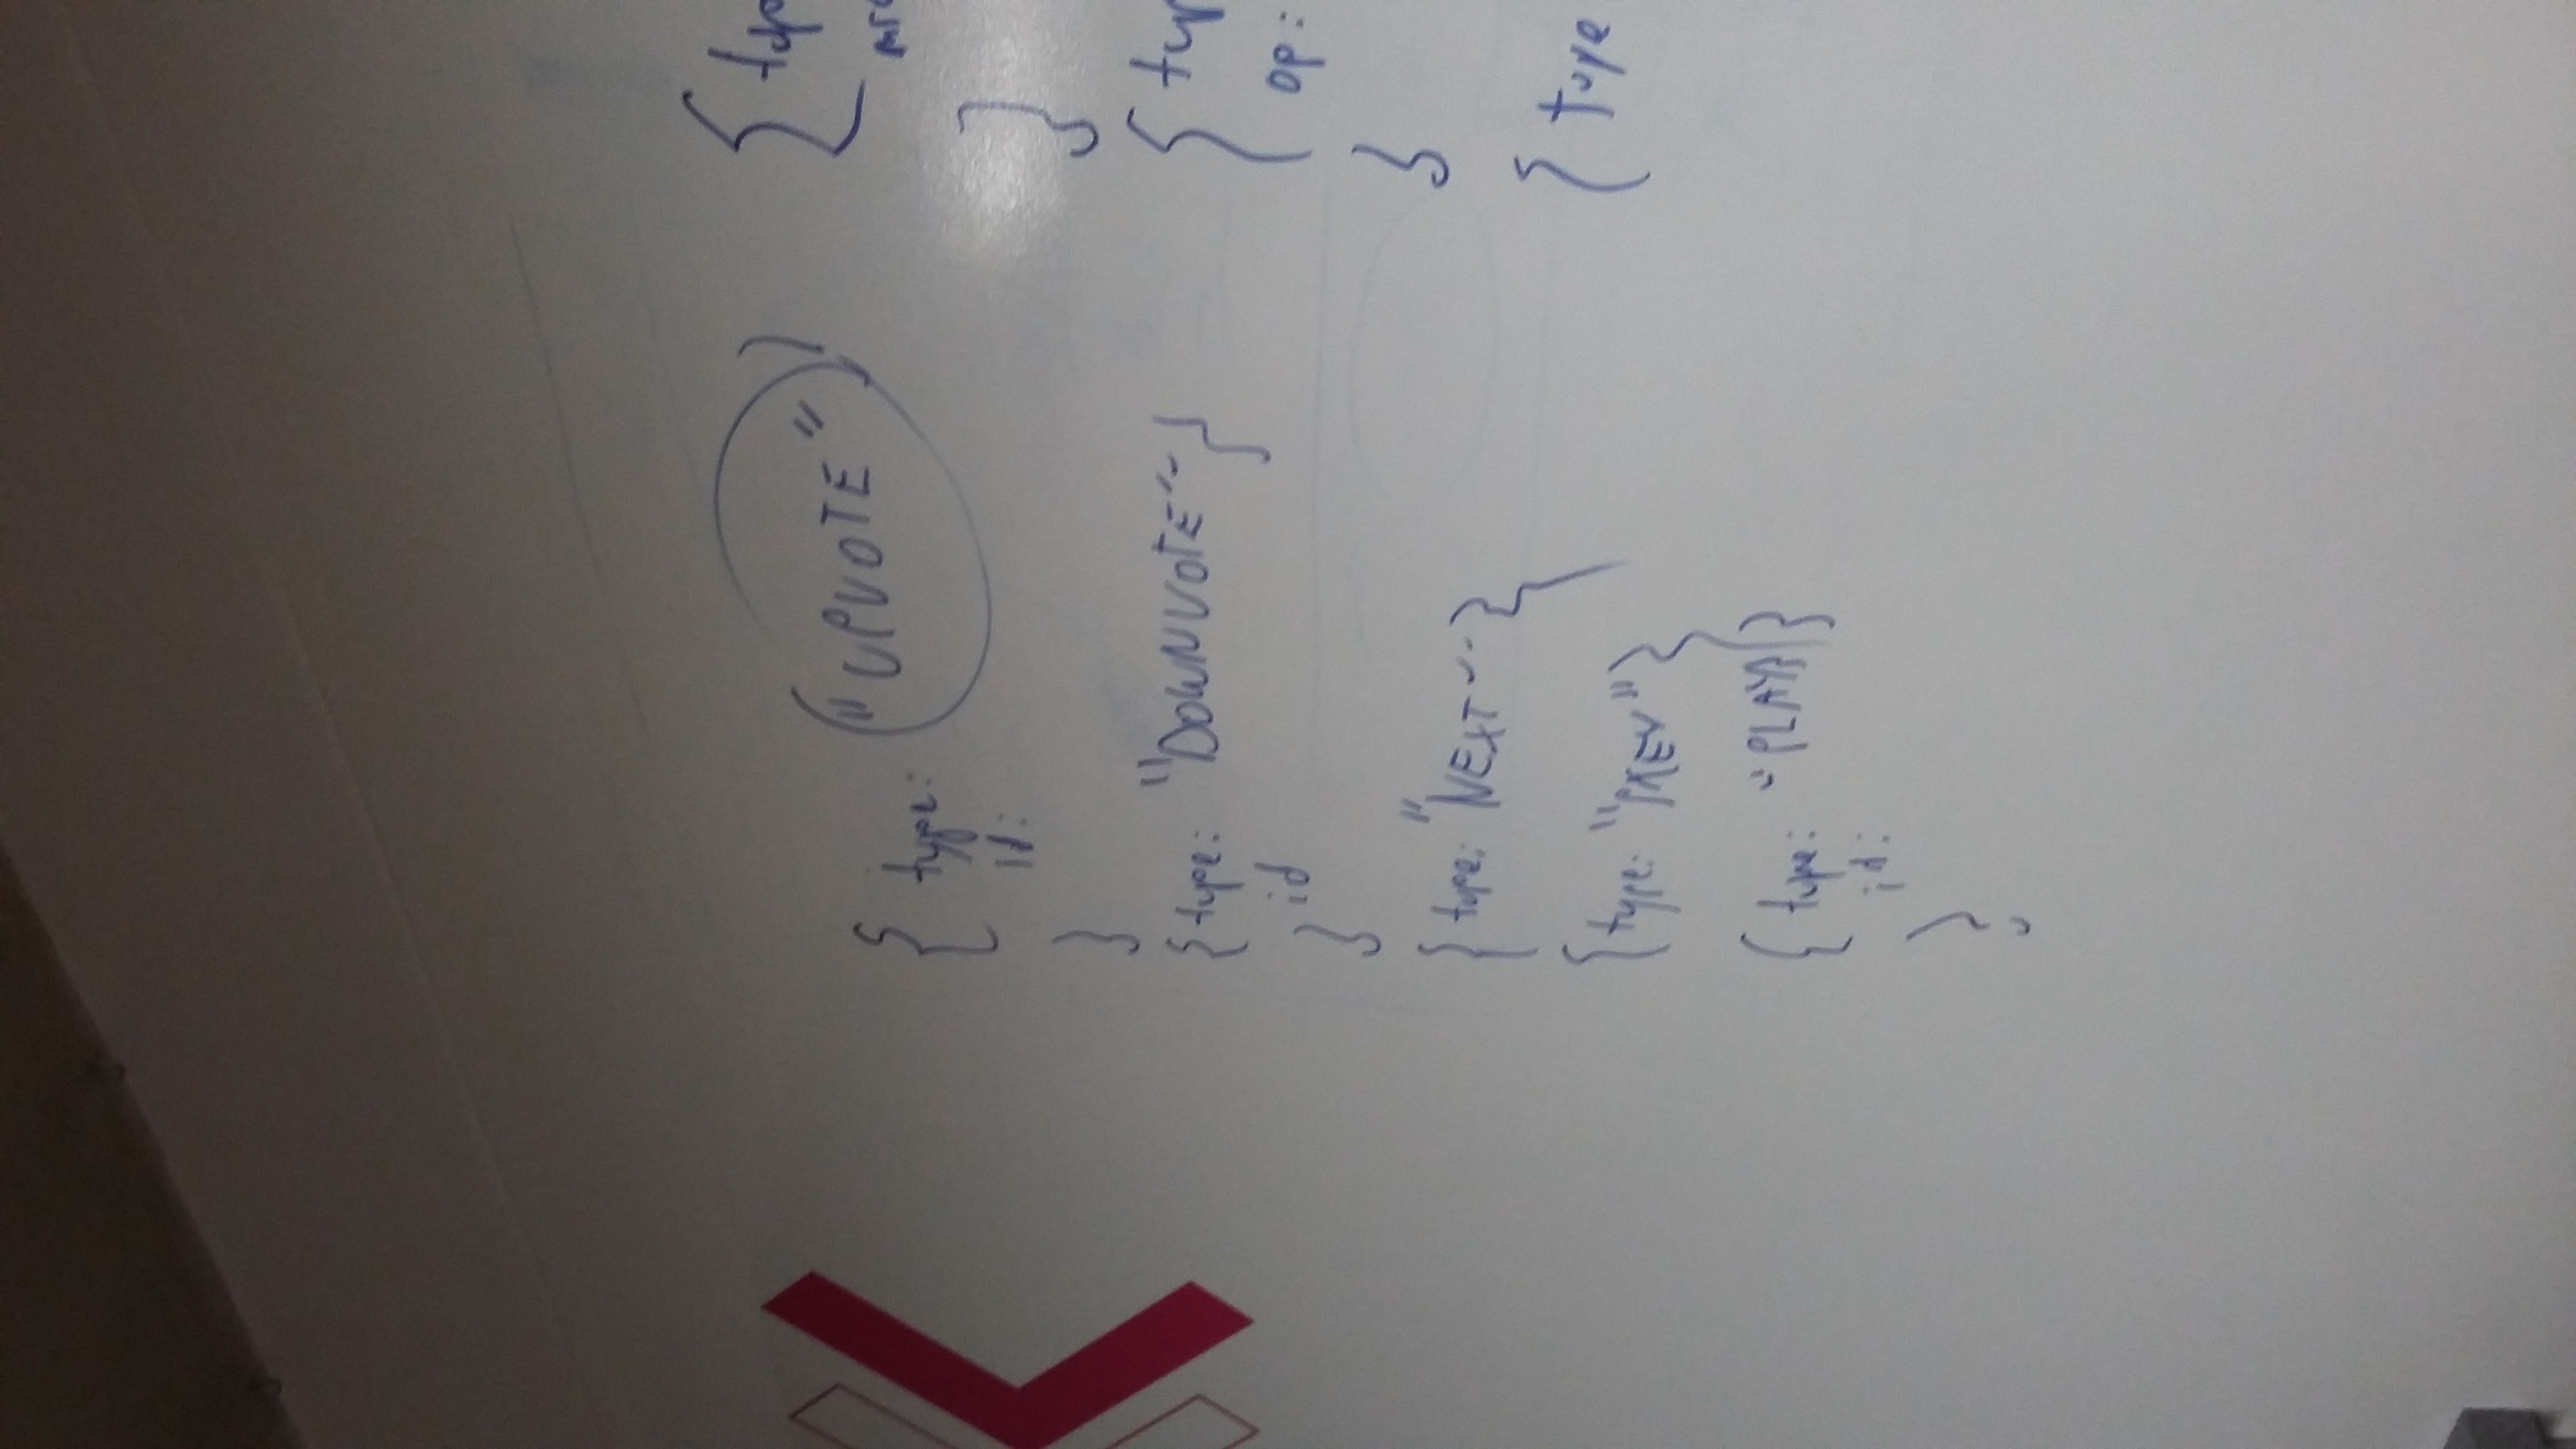 { type: "UPVOTE" }
id:
}
{ type: "DOWNVOTE" }
id
}
{ type: "NEXT" }
{ type: "PREV" }
{ type: "PLAY" }
id:
}
{ typ
]
{ typ
op:
}
{ type